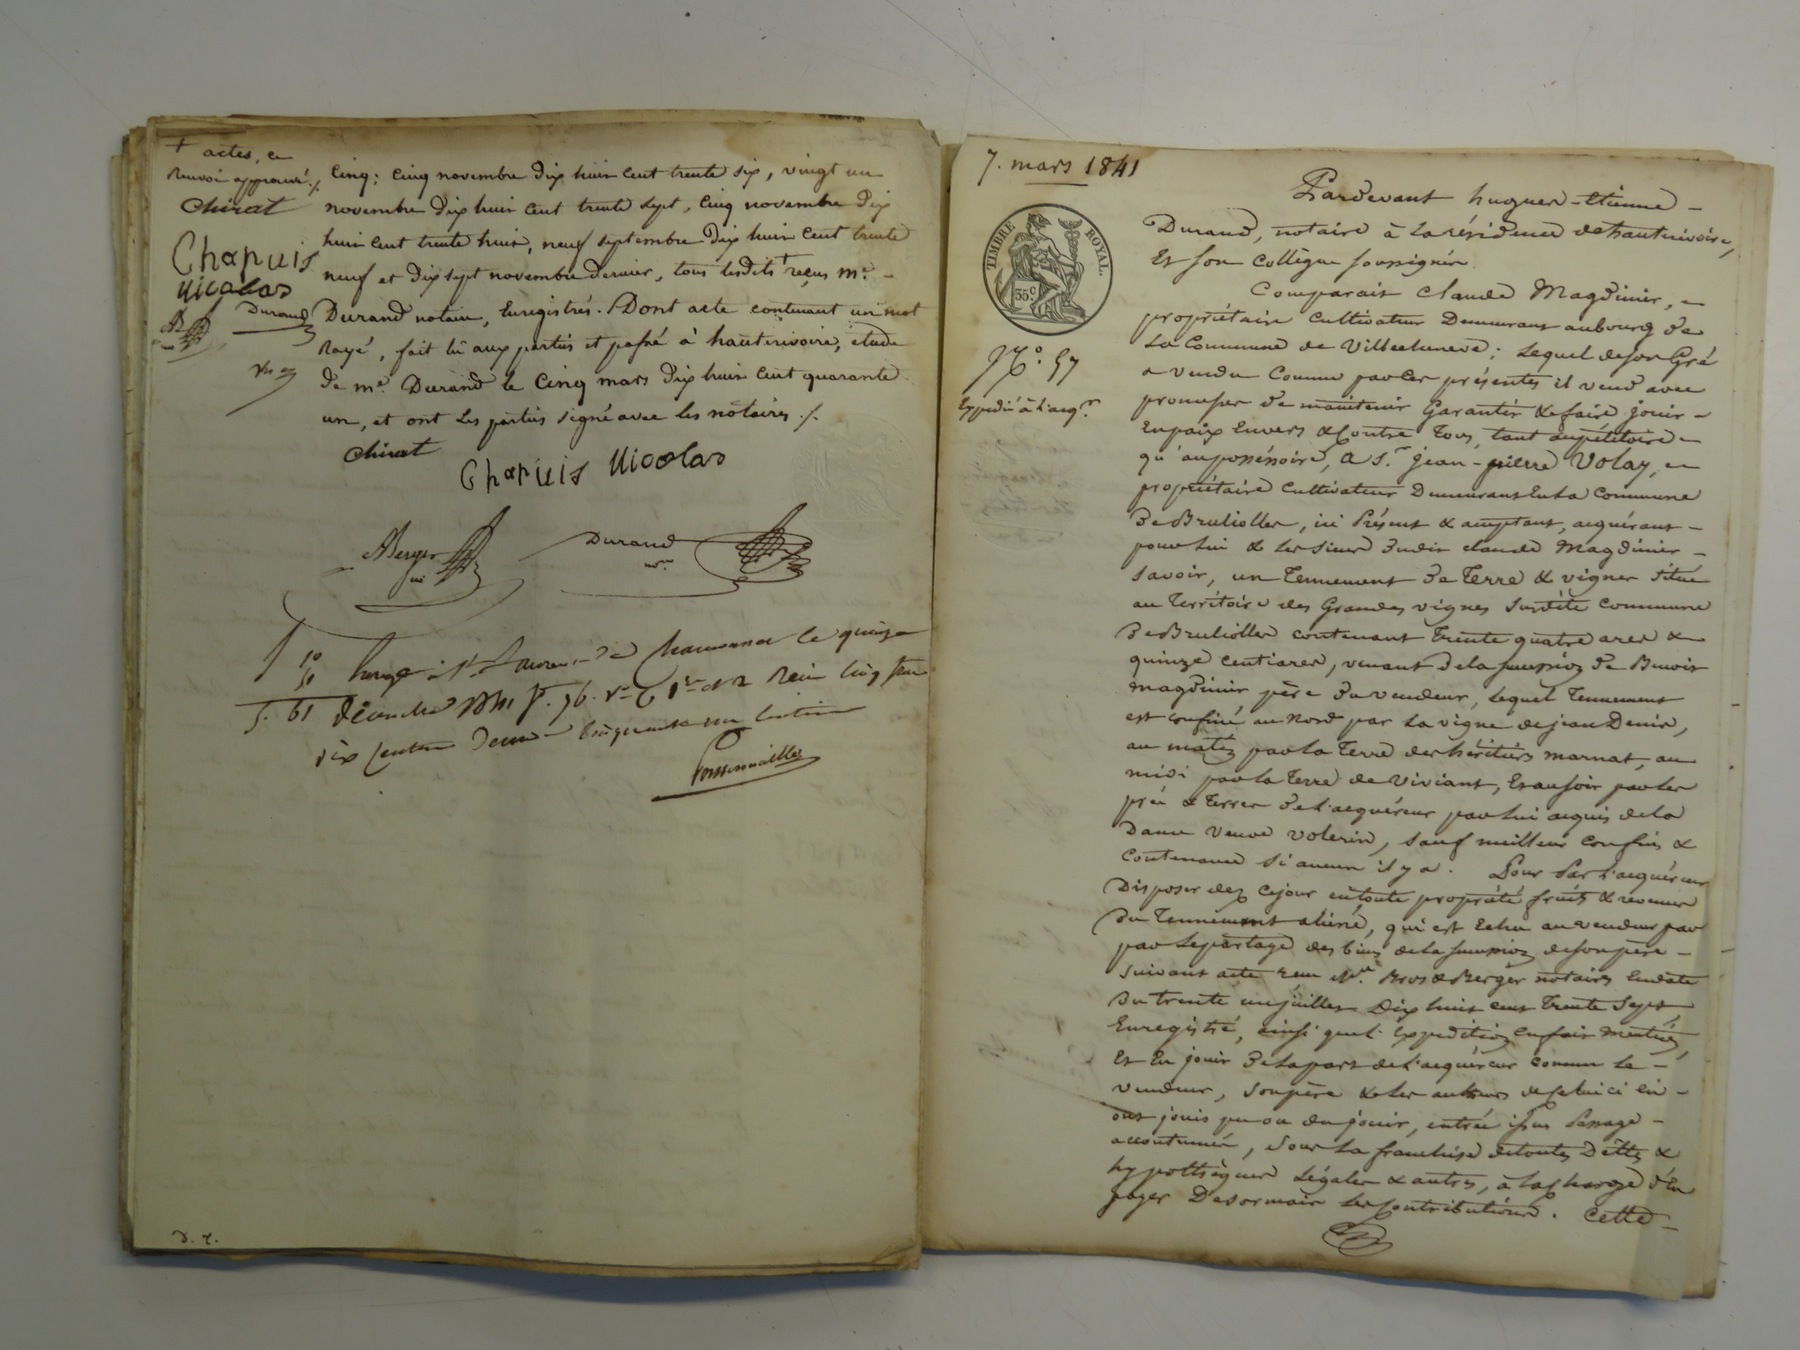 + actes, ce
renvoi approuvé ./.
Chirat
Chapuis
Nicolas
Durand
cinq; cinq novembre dix huit cent trente six, vingt un
novembre dix huit cent trente sept, cinq novembre dix
huit cent trente huit, neuf septembre dix huit cent trente
neuf et dix sept novembre dernier, tous lesdits + reçus me. -
Durand notaire, Enregistrés. Dont acte contenant un mot
rayé, fait lu aux parties et passé à hauterivoire, étude
de me. Durand le cinq mars dix huit cent quarante
un, et ont les parties signé avec les notaires ./.
Chirat
Chapuis Nicolas
Berger
Durand
St. Laurent de Chamousset le quinze
reçu cinq francs
dix centimes cinquante un centimes
D. 7.
7. mars 1841
TIMBRE ROYAL.
35 c
No. 57
Expédié à l'acqr.
Pardevant hugues-Etienne -
Durand, notaire à la résidence de hauterivoire,
Et son Collègue soussignés.
Comparait Claude Magdinier, -
propriétaire Cultivateur Demeurant au bourg de
la Commune de Villechenève; Lequel de son Gré
a vendu Comme par ces présentes il vend avec
promesse de maintenir Garantir & faire jouir -
En paix Envers & Contre Tous, tant au pétitoire -
qu'au possessoire, a Sr. jean-pierre Volay, -
propriétaire Cultivateur Demeurant En la Commune
De Brulioller, ici Présent & acceptant, acquérant -
pour lui & les siens dudit Claude Magdinier -
Savoir, un Tennement De Terre & vignes Situé
au Territoire des Grandes vignes Susdite Commune
De Brulioller contenant Trente quatre ares &
quinze centiares, venant de la succession de Benoit
Magdinier père du vendeur, Lequel Tennement
est confiné au Nord par la vigne de jean Denis,
au matin par la Terre des héritiers marnat, au
midi par la Terre de Viviant, Et au soir par les
prés & Terres de l'acquéreur par lui acquis de la
Dame Veuve Volerin, sauf meilleurs confins &
Contenance Si aucun il y a. Pour par l'acquéreur
Disposer dez ce jour en toute propriété fruits & revenus
Du Tennement aliéné, qui est Echu au vendeur par
par le partage des biens de la succession de son père -
Suivant acte reçu Me. Bros & Berger notaires En date
Du trente un juillet Dix huit cent Trente Sept,
Enregistré, ainsi que l'Expédition en fait mention,
Et En jouir De la part de l'acquéreur comme le -
vendeur, son père & les auteurs de celui ci en -
ont jouis pu ou du jouir, entrée issue Passage -
accoutumés, Sous la franchise de toutes Dettes &
hypothèques Légales & autres, à la charge d'En
payer Desormais les Contributions. Cette -